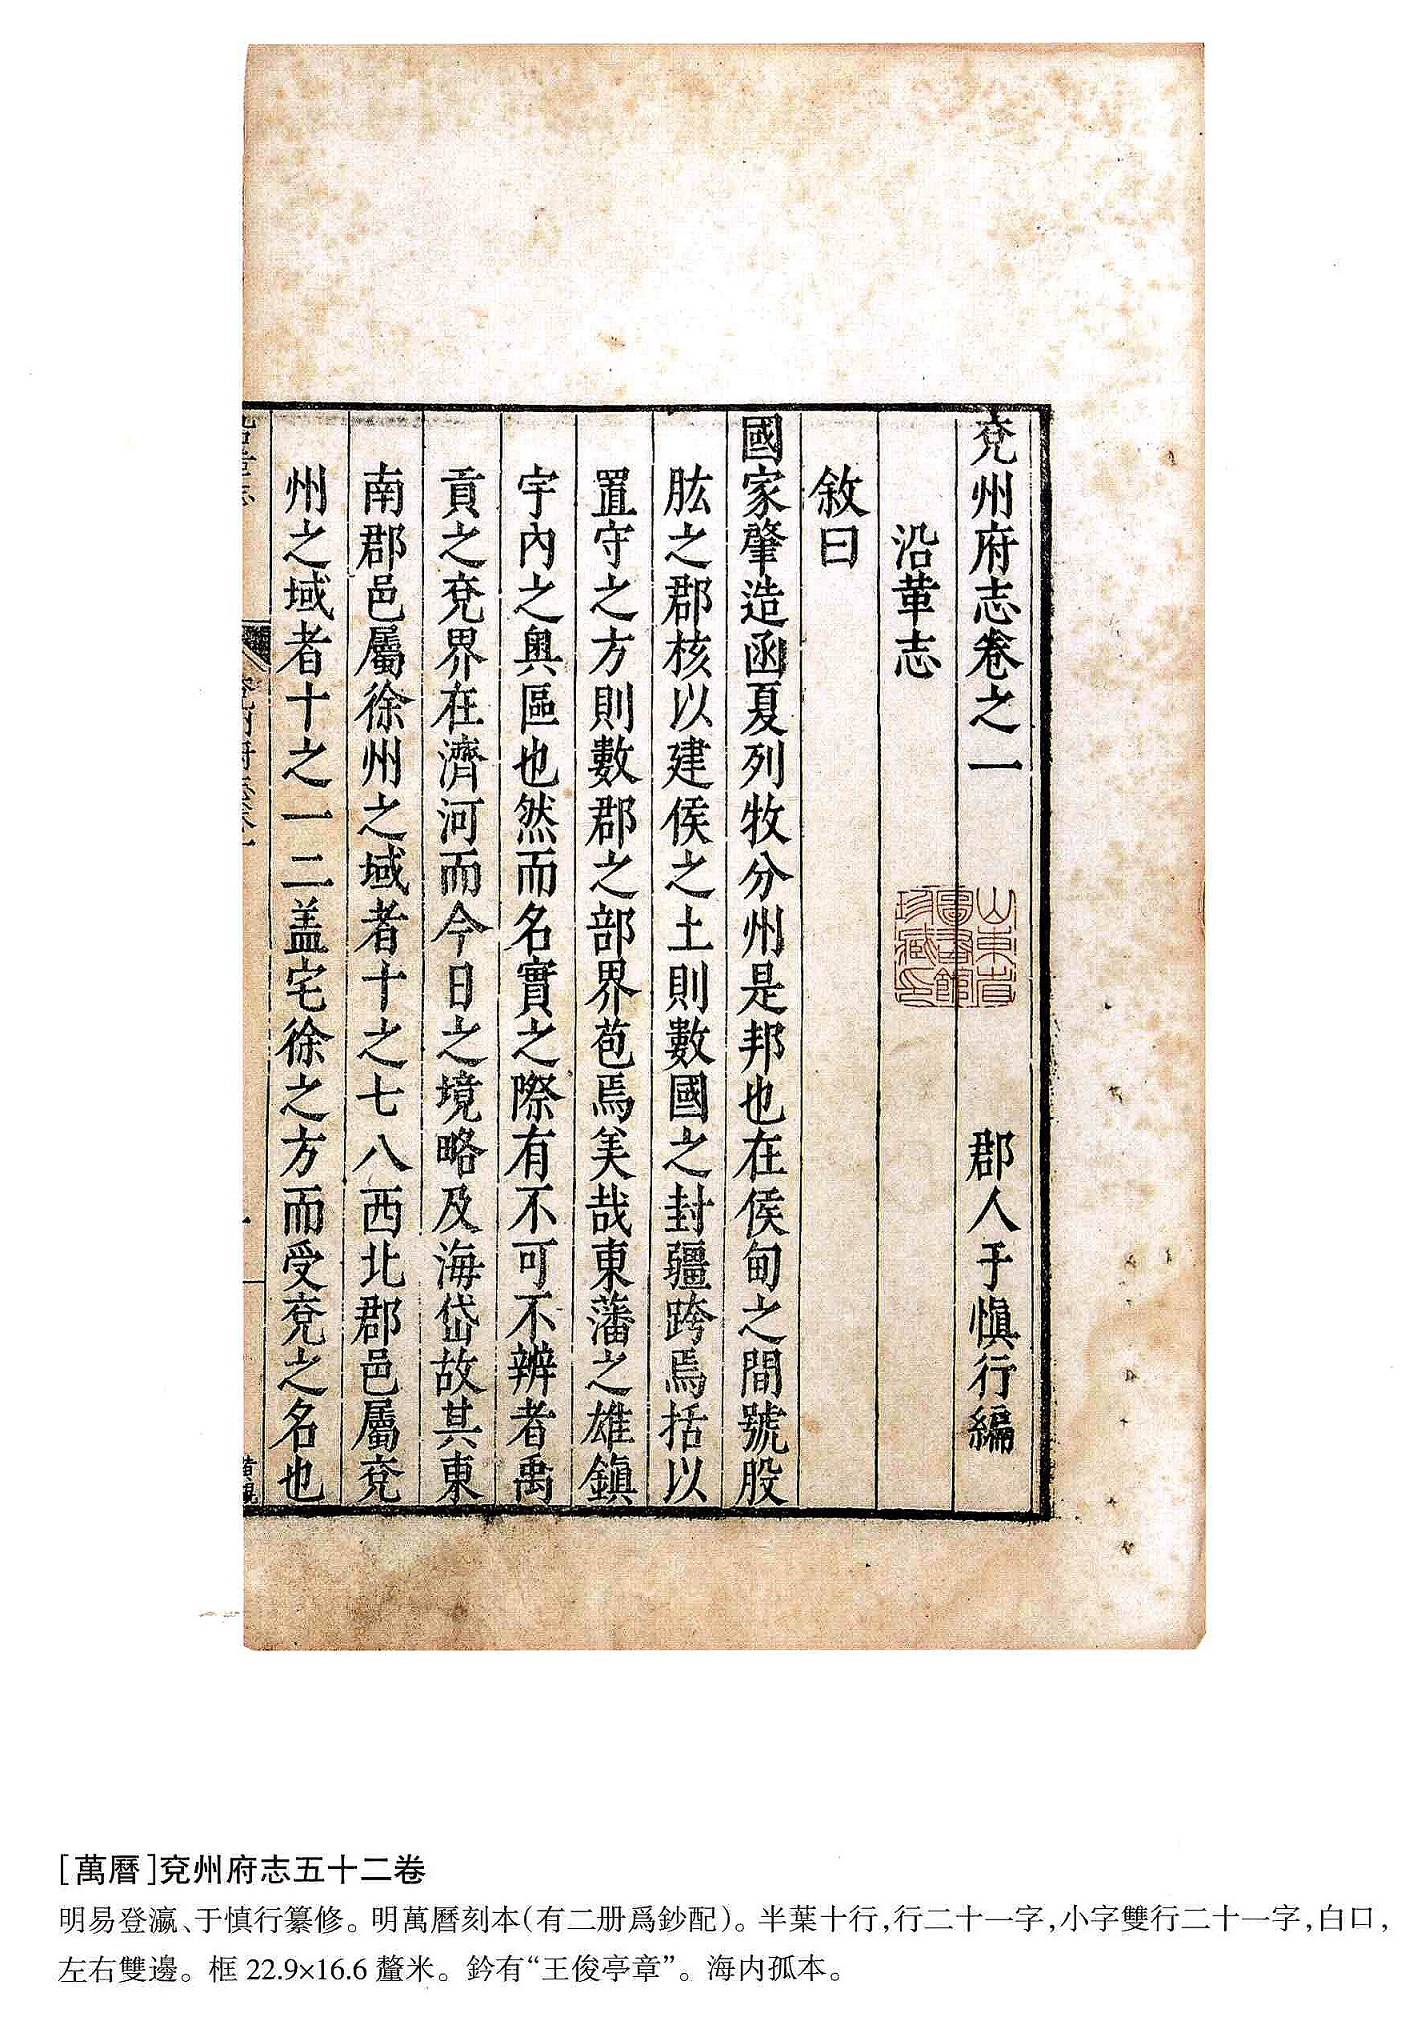 兗州府志卷之一 郡人于慎行編
沿革志
敘曰
國家肇造函夏列牧分州是邦也在侯甸之間號股
肱之郡核以建侯之土則數國之封疆跨焉括以
置守之方則數郡之部界苞焉美哉東藩之雄鎮
宇內之輿區也然而名實之際有不可不辨者禹
貢之兗界在濟河而今日之境略及海岱故其東
南郡邑屬徐州之域者十之七八西北郡邑屬兗
州之域者十之一二盖宅徐之方而受兗之名也
山東省
圖書館
珍藏印
[萬曆]兗州府志五十二卷
明易登瀛、于慎行纂修。明萬曆刻本(有二册爲鈔配)。半葉十行,行二十一字,小字雙行二十一字,白口,
左右雙邊。框 22.9×16.6 釐米。鈐有“王俊亭章”。海内孤本。